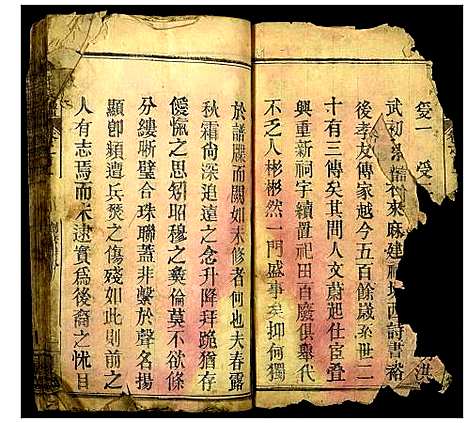 受一 受二
洪武初 來麻建祠 西詩書裕
後孝友傳家越今五百餘歲至世二
十有三傳矣其間人文蔚起仕宦疊
興重新祠宇續置祀田百廢俱舉代
不乏人彬彬然一門盛事矣抑何獨
於譜牒而闕如未修者何也夫春露
秋霜尙深追遠之念升降拜跪猶存
僾愾之思矧昭穆之彝倫莫不欲條
分縷晰璧合珠聯蓋非繫於聲名揚
顯卽頻遭兵燹之傷殘如此則前之
人有志焉而未逮實爲後裔之怃目